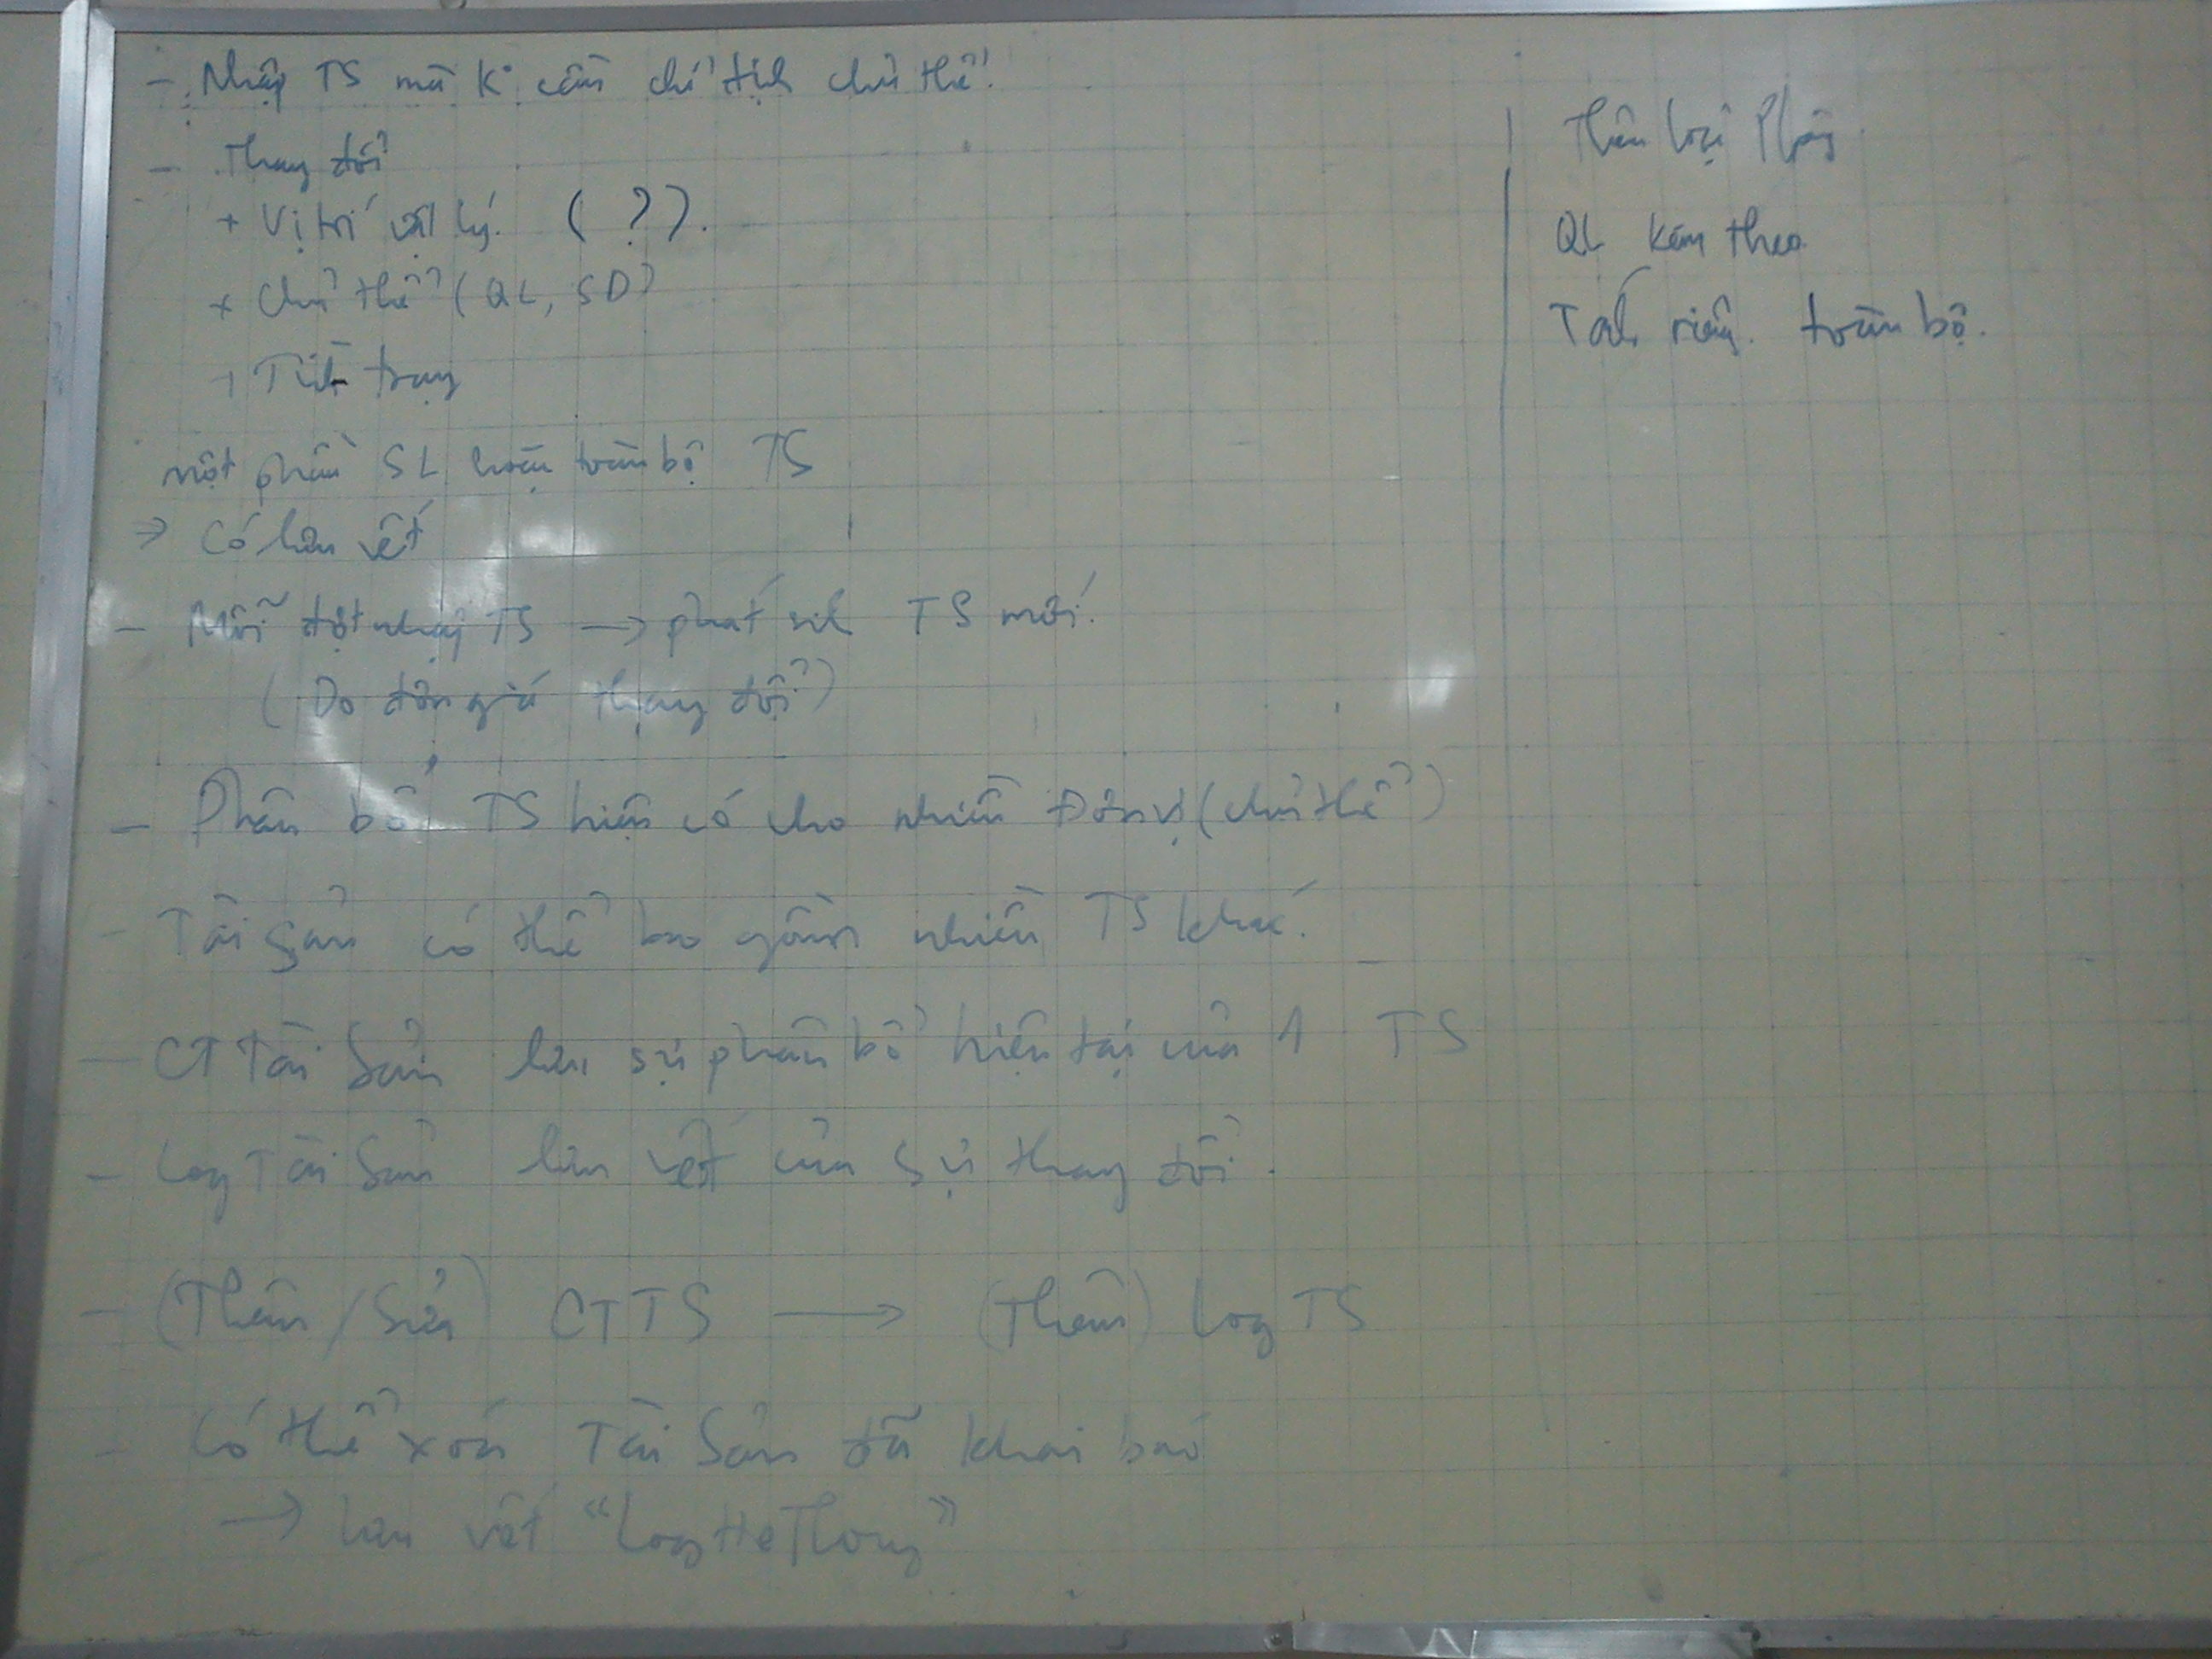 - Nhập TS mà K° cần chỉ định chủ thể.
- Thay đổi
+ Vị trí vật lý. (?).
+ Chủ thể (QL, SD)
+ Tình trạng
một phần SL hoặc toàn bộ TS
=> Có lưu vết
- Mỗi đợt nhập TS → phát sinh TS mới.
(Do đơn giá thay đổi)
- Phân bổ TS hiện có cho nhiều Đơn vị (chủ thể)
- Tài sản có thể bao gồm nhiều TS khác.
- CT Tài Sản lưu sự phân bổ hiện tại của 1 TS
- Log Tài Sản lưu vết của sự thay đổi.
- (Thêm/Sửa) CTTS → (Thêm) Log TS
- Có thể xóa Tài Sản đã khai báo
→ lưu vết "LogHeThong"
Thêm loại Phòng
QL kèm theo
Tách riêng. toàn bộ.